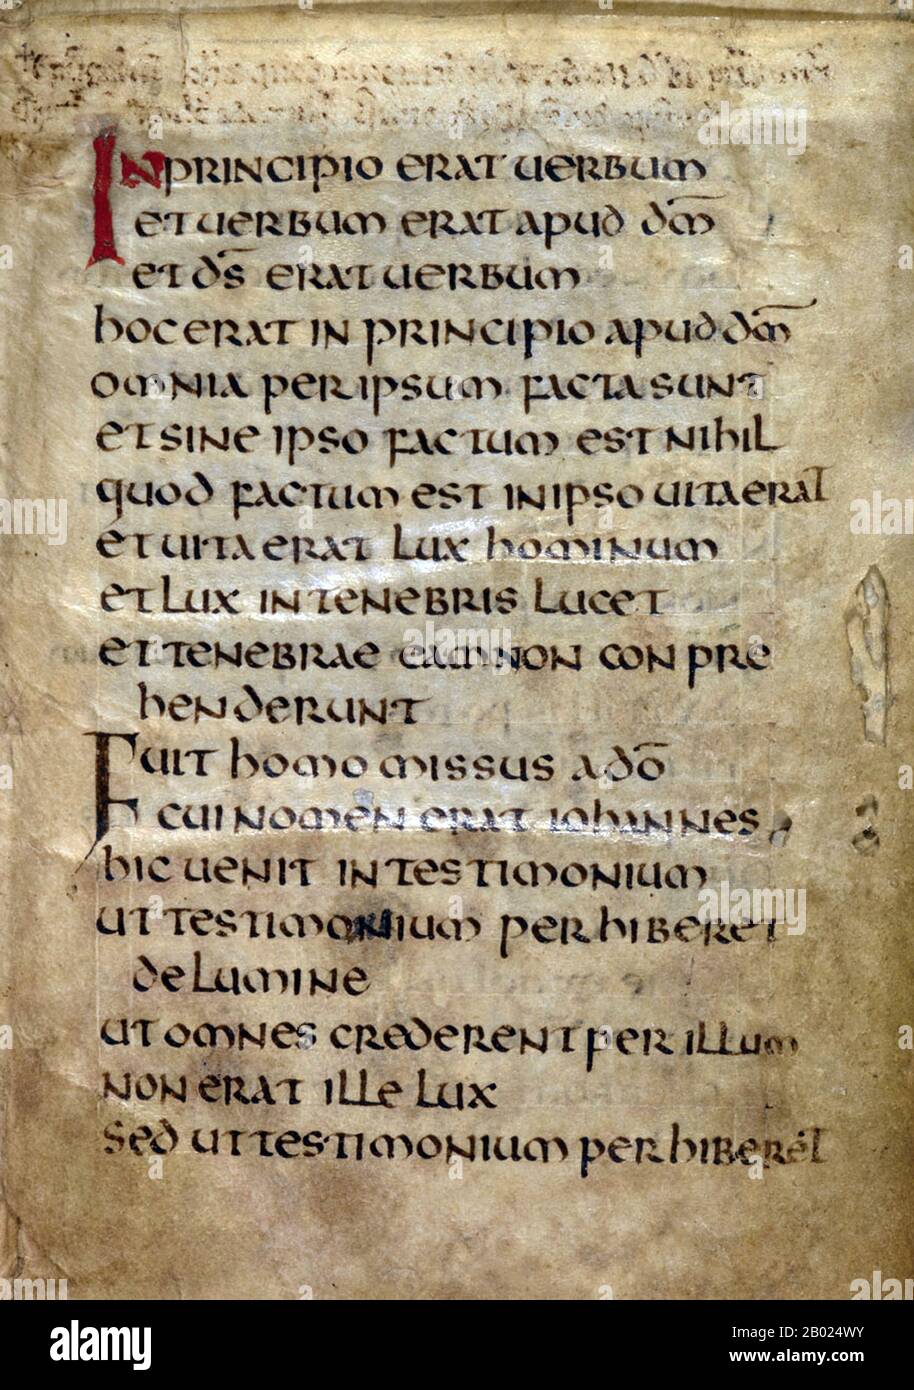 IN PRINCIPIO ERAT UERBUM
ET UERBUM ERAT APUD dm̄
ET ds̄ ERAT UERBUM
hOC ERAT IN PRINCIPIO APUD dm̄
OMNIA PER IPSUM FACTA SUNT
ET SINE IPSO FACTUM EST NIhIL
QUOD FACTUM EST IN IPSO UITA ERAT
ET UITA ERAT LUX hOMINUM
ET LUX IN TENEBRIS LUCET
ET TENEBRAE EAM NON CONPRE
hENDERUNT
FUIT hOMO MISSUS A dō
CUI NOMEN ERAT IOhANNES
hIC UENIT IN TESTIMONIUM
UT TESTIMONIUM PERhIBERET
DE LUMINE
UT OMNES CREDERENT PER ILLUM
NON ERAT ILLE LUX
SED UT TESTIMONIUM PERhIBERET
alamy
Image ID: 2B024WY
www.alamy.com